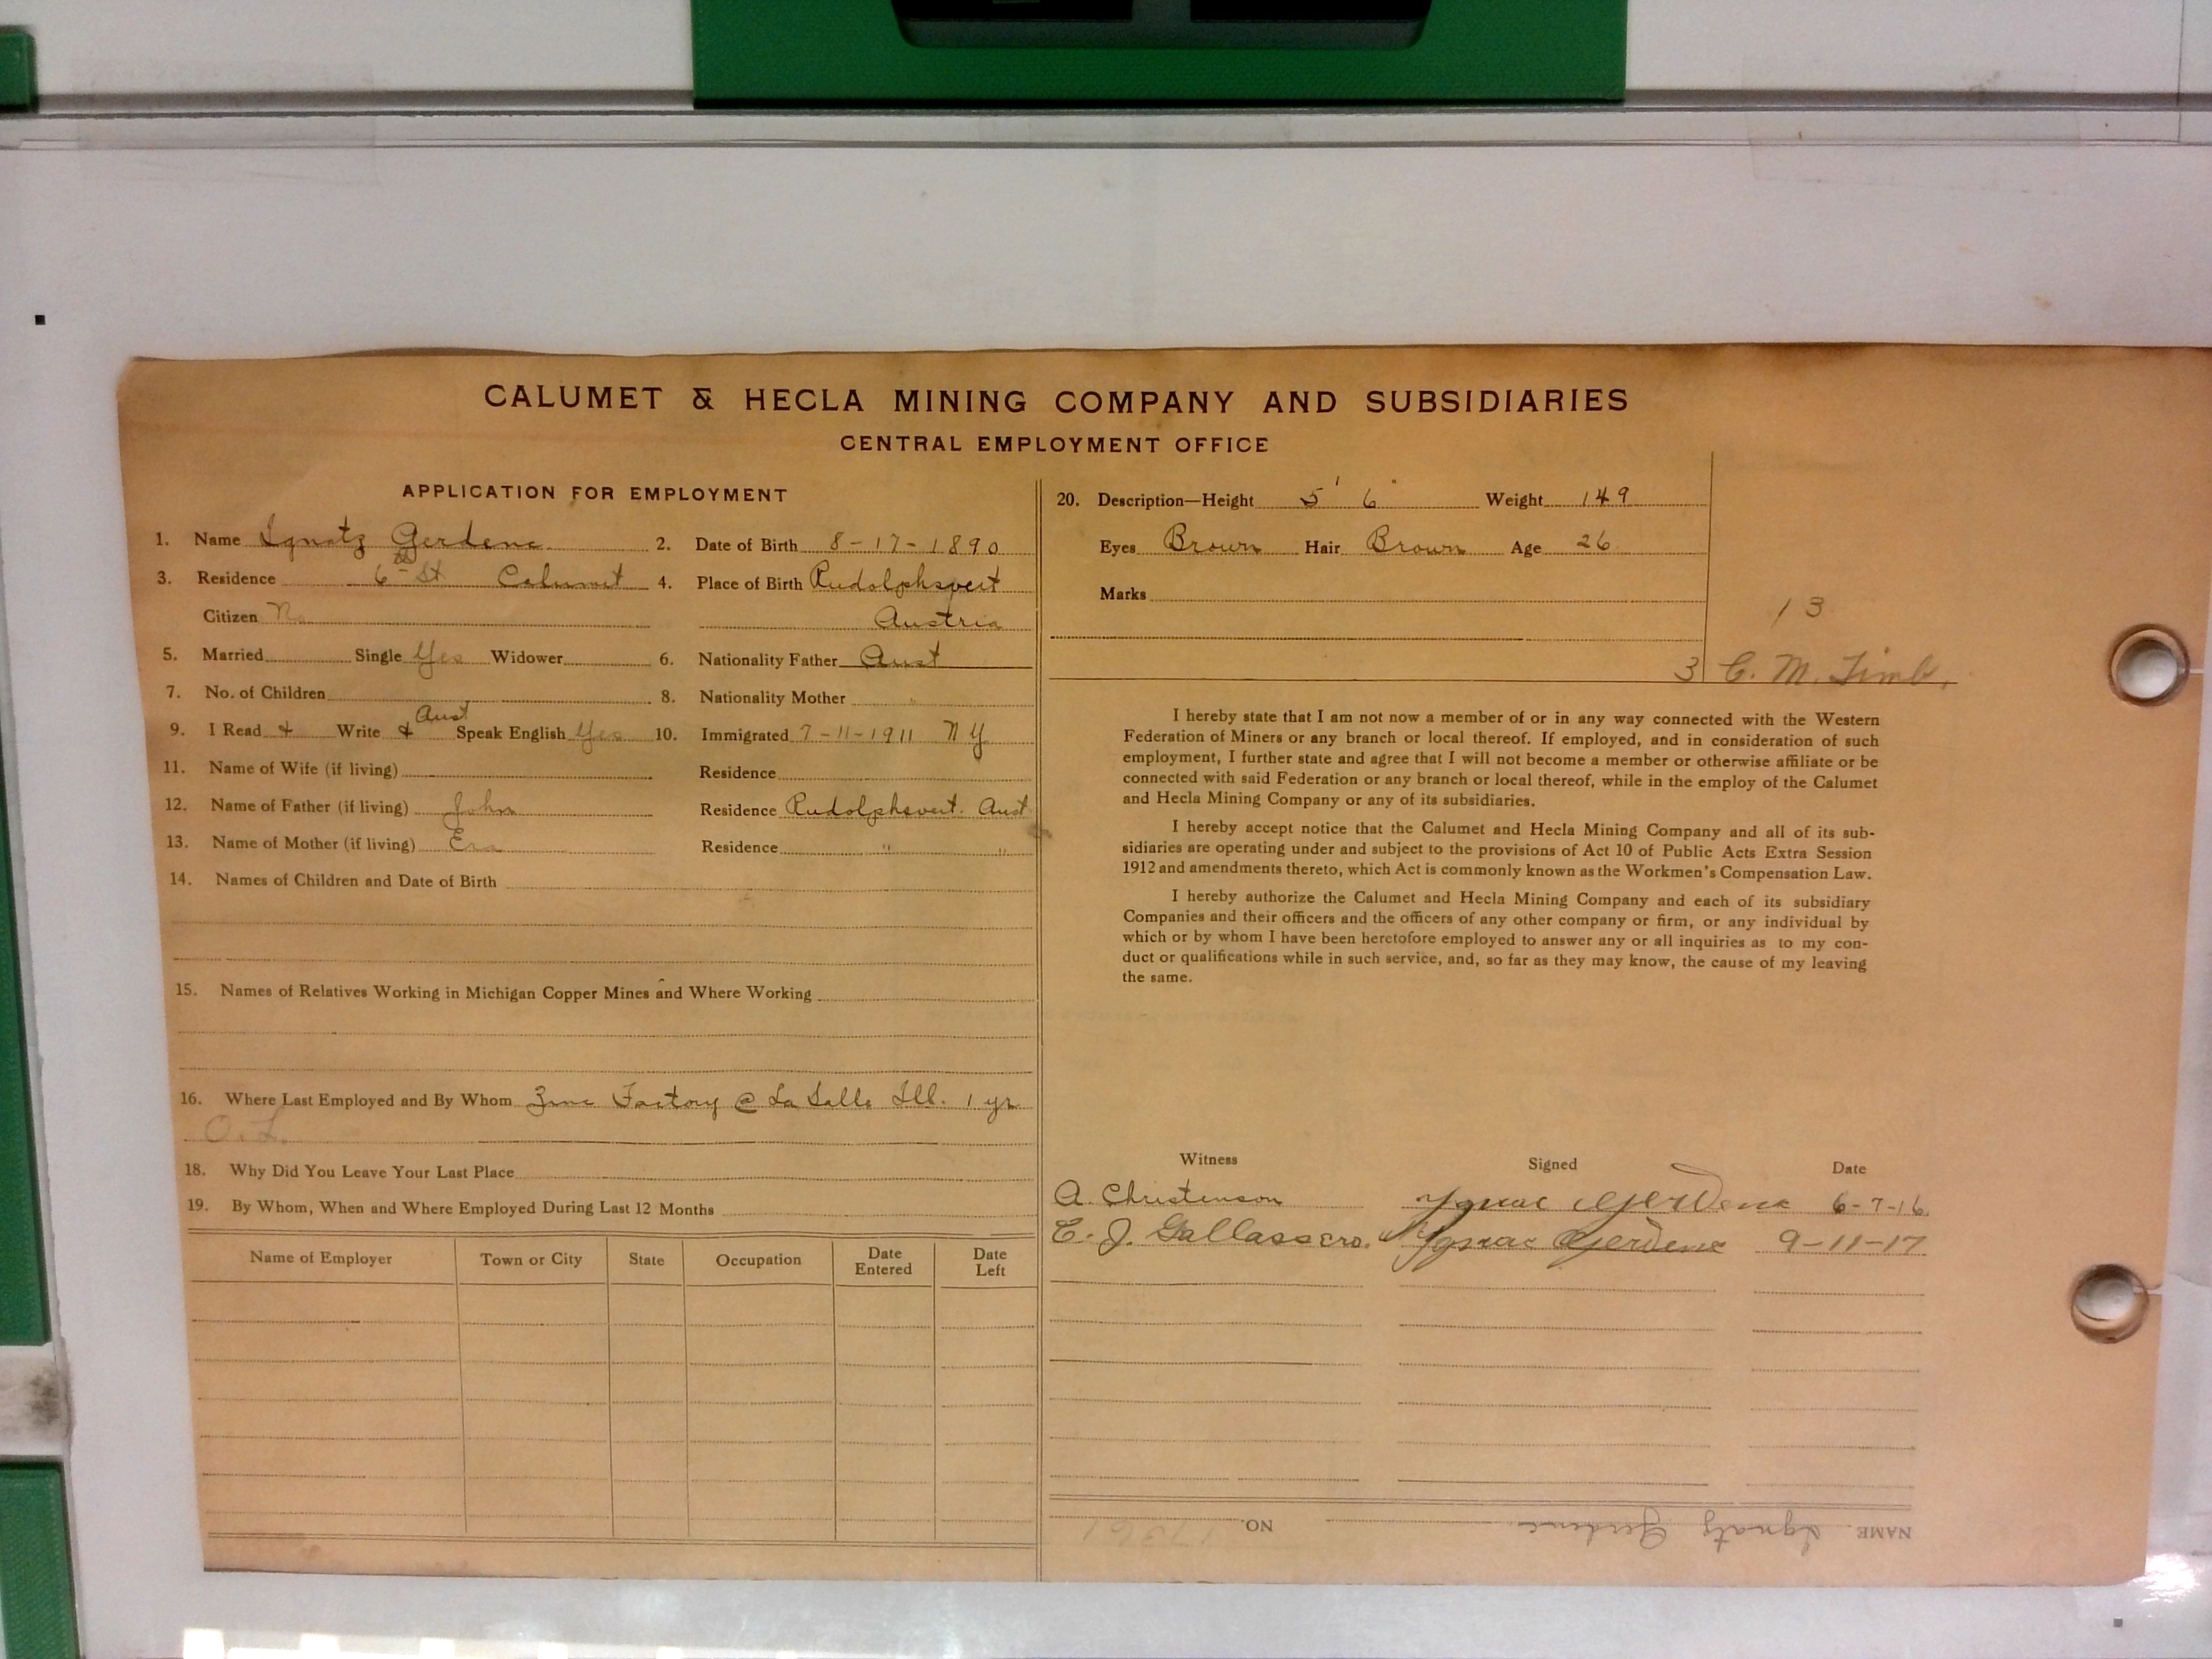 CALUMET & HECLA MINING COMPANY AND SUBSIDIARIES
CENTRAL EMPLOYMENT OFFICE
APPLICATION FOR EMPLOYMENT
1. Name Ignatz Gerdenc 2. Date of Birth 8-17-1890
3. Residence 6th St Calumet 4. Place of Birth Rudolphsvert
Citizen No Austria
5. Married Single Yes Widower 6. Nationality Father Aust
7. No. of Children 8. Nationality Mother "
Aust
9. I Read & Write & Speak English Yes 10. Immigrated 7-11-1911 NY
11. Name of Wife (if living) Residence
12. Name of Father (if living) John Residence Rudolphsvert. Aust
13. Name of Mother (if living) Residence " "
14. Names of Children and Date of Birth
15. Names of Relatives Working in Michigan Copper Mines and Where Working
16. Where Last Employed and By Whom Zinc Factory @ La Salle Ill. 1 yr
O.L.
18. Why Did You Leave Your Last Place
19. By Whom, When and Where Employed During Last 12 Months
Name of Employer Town or City State Occupation Date Entered Date Left
20. Description—Height 5' 6" Weight 149
Eyes Brown Hair Brown Age 26
Marks
13
3 C. M. Timb.
I hereby state that I am not now a member of or in any way connected with the Western
Federation of Miners or any branch or local thereof. If employed, and in consideration of such
employment, I further state and agree that I will not become a member or otherwise affiliate or be
connected with said Federation or any branch or local thereof, while in the employ of the Calumet
and Hecla Mining Company or any of its subsidiaries.
I hereby accept notice that the Calumet and Hecla Mining Company and all of its sub-
sidiaries are operating under and subject to the provisions of Act 10 of Public Acts Extra Session
1912 and amendments thereto, which Act is commonly known as the Workmen's Compensation Law.
I hereby authorize the Calumet and Hecla Mining Company and each of its subsidiary
Companies and their officers and the officers of any other company or firm, or any individual by
which or by whom I have been heretofore employed to answer any or all inquiries as to my con-
duct or qualifications while in such service, and, so far as they may know, the cause of my leaving
the same.
Witness Signed Date
A. Christenson Ygnac Gerdenc 6-7-16
E. J. Gallassero. Ygnac Gerdenc 9-11-17
NAME Ignatz Gerdenc NO. 17361